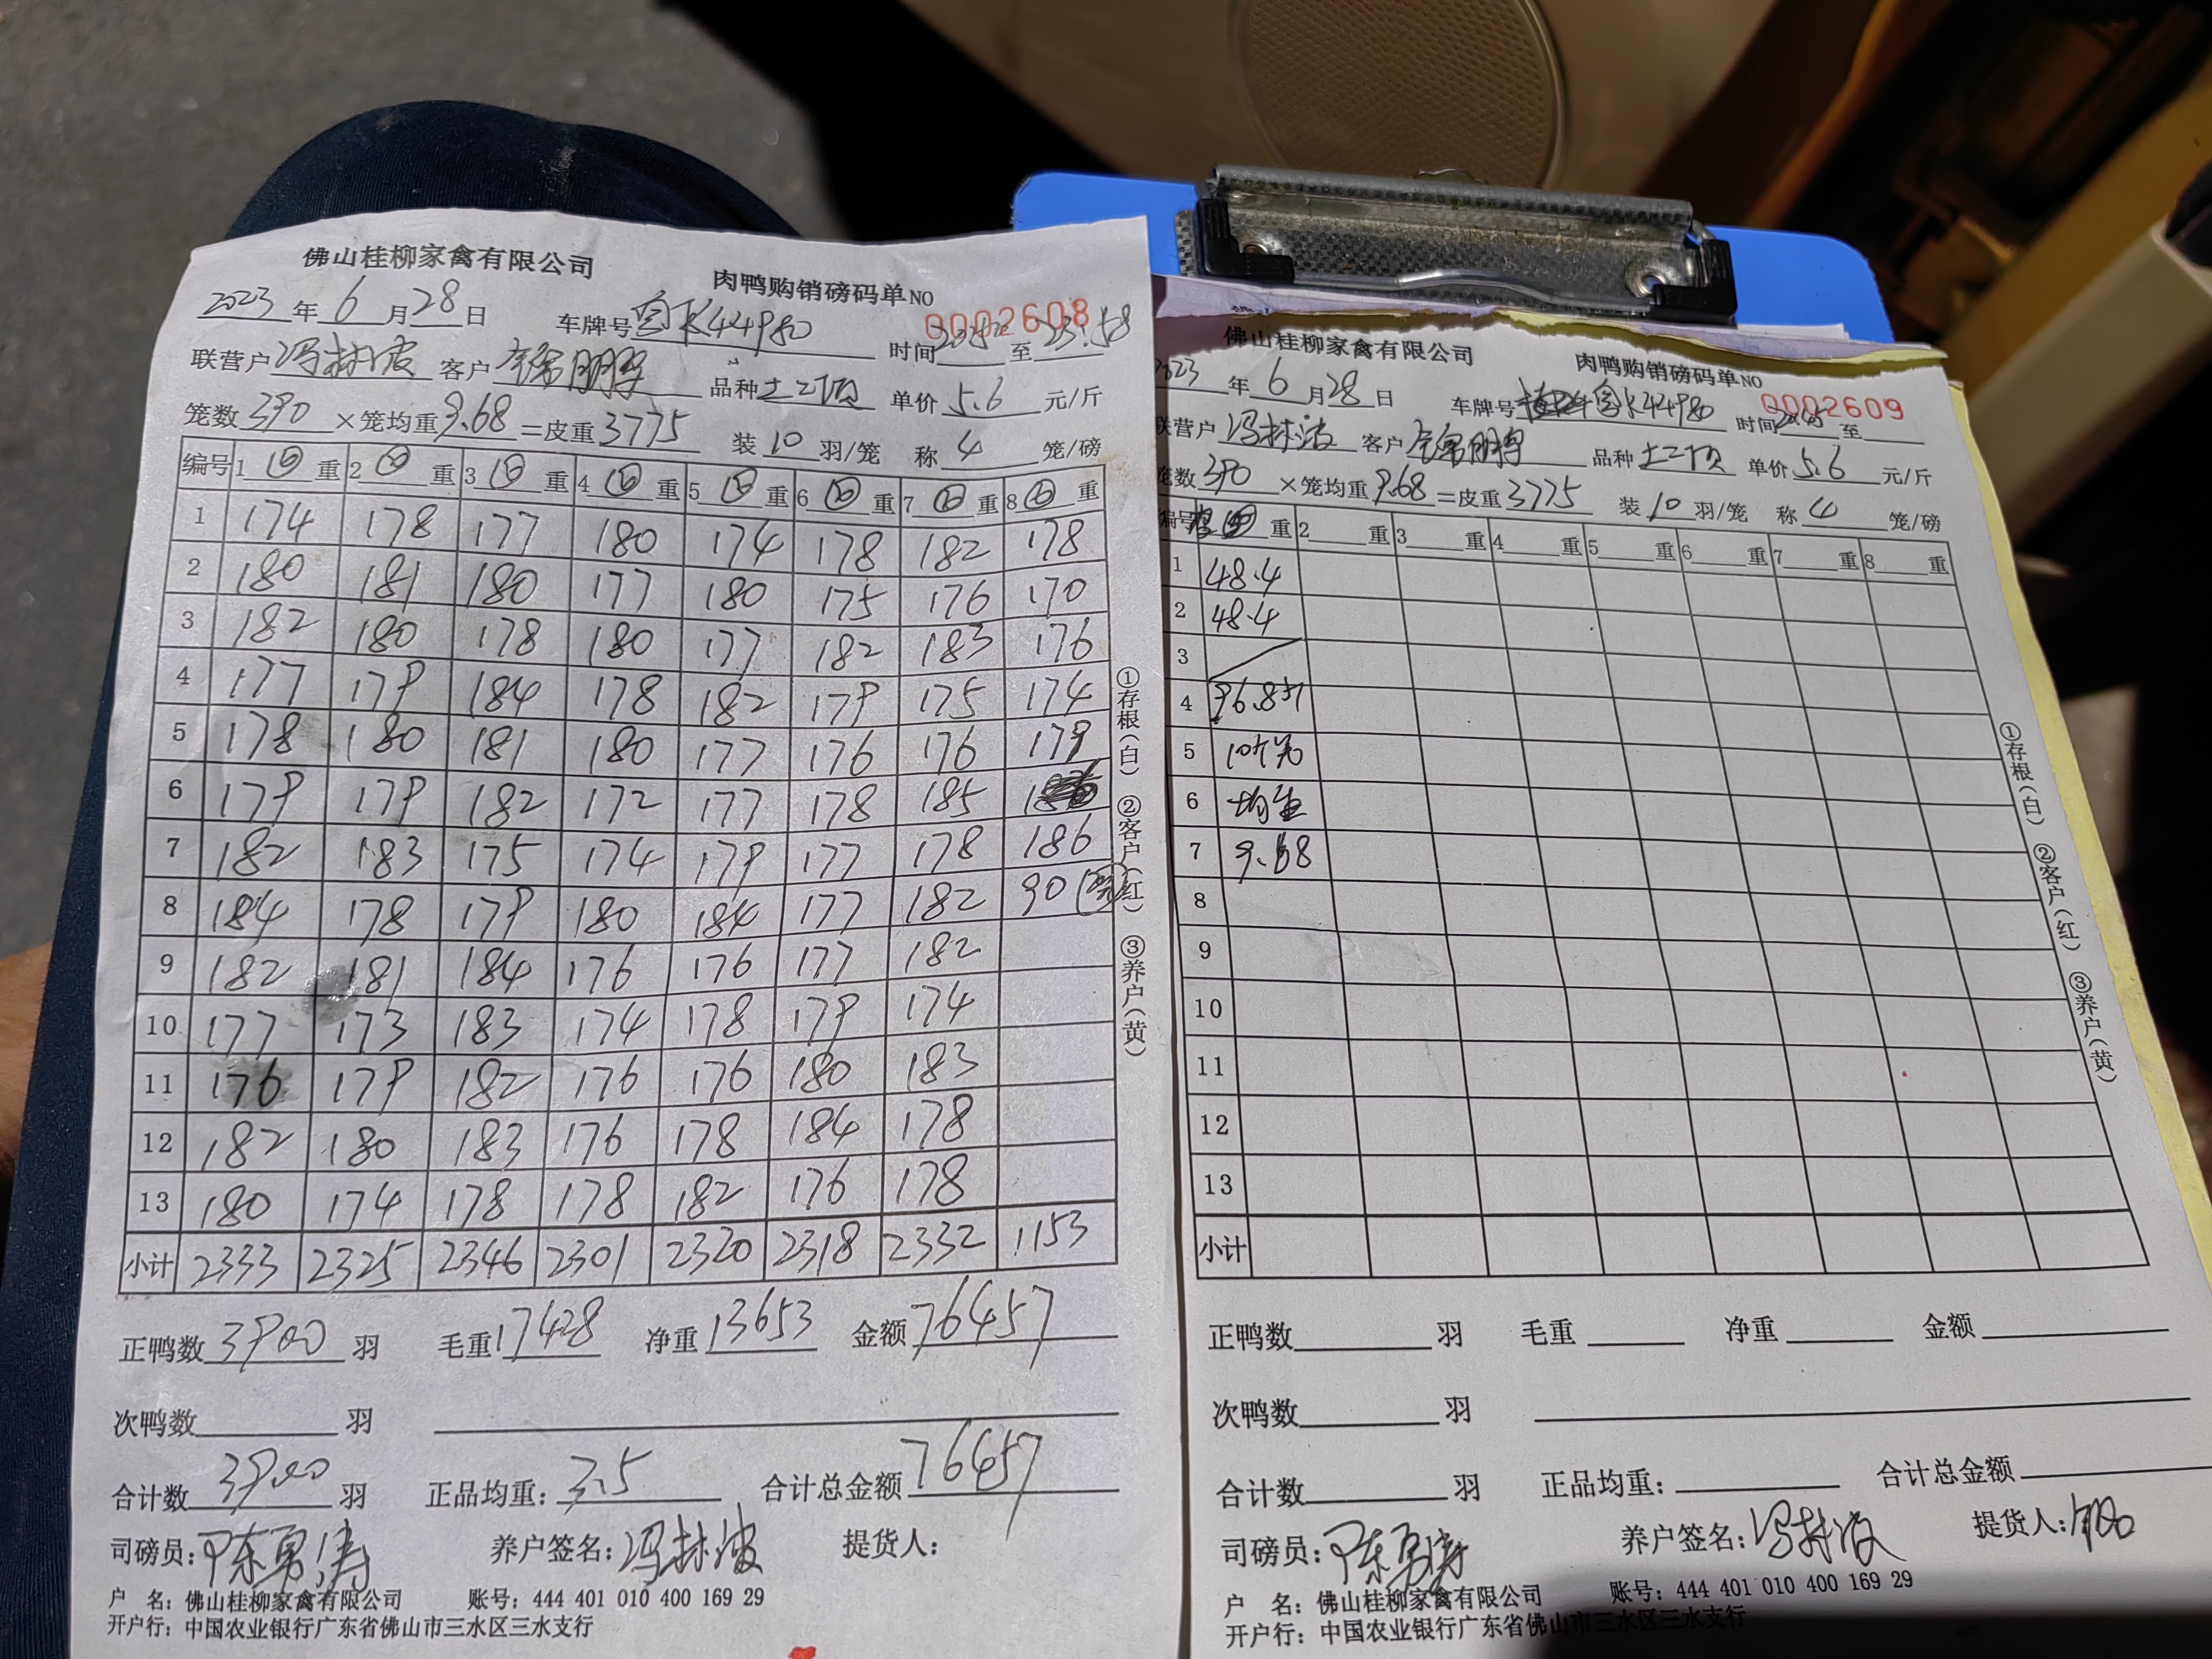 佛山桂柳家禽有限公司 肉鸭购销磅码单NO 0002608
2023年6月28日 车牌号 44980 时间 至23:58
联营户冯林波 客户 品种土二顶 单价5.6元/斤
笼数390×笼均重9.68=皮重3775 装10羽/笼 称4笼/磅
编号 1⑩重 2⑩重 3⑩重 4⑩重 5⑩重 6⑩重 7⑩重 8⑩重
1 174 178 177 180 174 178 182 178
2 180 181 180 177 180 175 176 170
3 182 180 178 180 177 182 183 176
4 177 179 184 178 182 179 175 174
5 178 180 181 180 177 176 176 179
6 179 179 182 172 177 178 185
7 182 183 175 174 179 177 178 186
8 184 178 179 180 184 177 182 90
9 182 181 184 176 176 177 182
10 177 173 183 174 178 179 174
11 176 179 182 176 176 180 183
12 182 180 183 176 178 184 178
13 180 174 178 178 182 176 178
小计 2333 2325 2346 2301 2320 2318 2332 1153
①存根(白) ②客户(红) ③养户(黄)
正鸭数3900羽 毛重17428 净重13653 金额76457
次鸭数 羽
合计数3900羽 正品均重:3.5 合计总金额76457
司磅员:陈勇涛 养户签名:冯林波 提货人:
户 名:佛山桂柳家禽有限公司 账号:444 401 010 400 169 29
开户行:中国农业银行广东省佛山市三水区三水支行
佛山桂柳家禽有限公司 肉鸭购销磅码单NO 0002609
2023年6月28日 车牌号 44980 时间 至
联营户冯林波 客户 品种土二顶 单价5.6元/斤
笼数390×笼均重9.68=皮重3775 装10羽/笼 称4笼/磅
编号 重 2 重 3 重 4 重 5 重 6 重 7 重 8 重
1 48.4
2 48.4
3
4 96.8斤
5 10个笼
6 均重
7 9.68
8
9
10
11
12
13
小计
①存根(白) ②客户(红) ③养户(黄)
正鸭数 羽 毛重 净重 金额
次鸭数 羽
合计数 羽 正品均重: 合计总金额
司磅员:陈勇涛 养户签名:冯林波 提货人:
户 名:佛山桂柳家禽有限公司 账号:444 401 010 400 169 29
开户行:中国农业银行广东省佛山市三水区三水支行